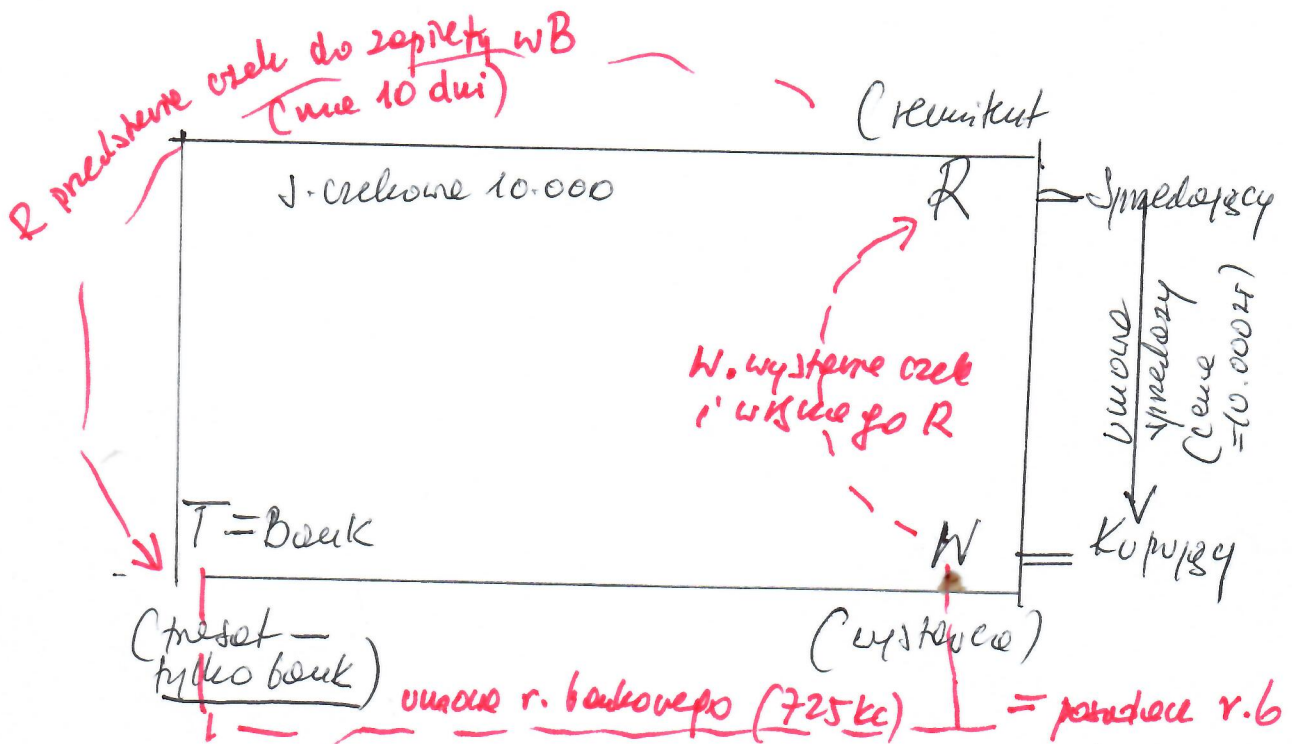 R przedstawia czek do zapłaty w B
(ma 10 dni)
(remitent
s. czekowa 10.000
R
Sprzedający
umowa
sprzedaży
(cena
=10.000zł)
W. wystawia czek
i wręcza go R
T = Bank
W
Kupujący
(trasat –
tylko bank)
(wystawca)
umowa r. bankowego (725 kc)
= posiadacz r.b